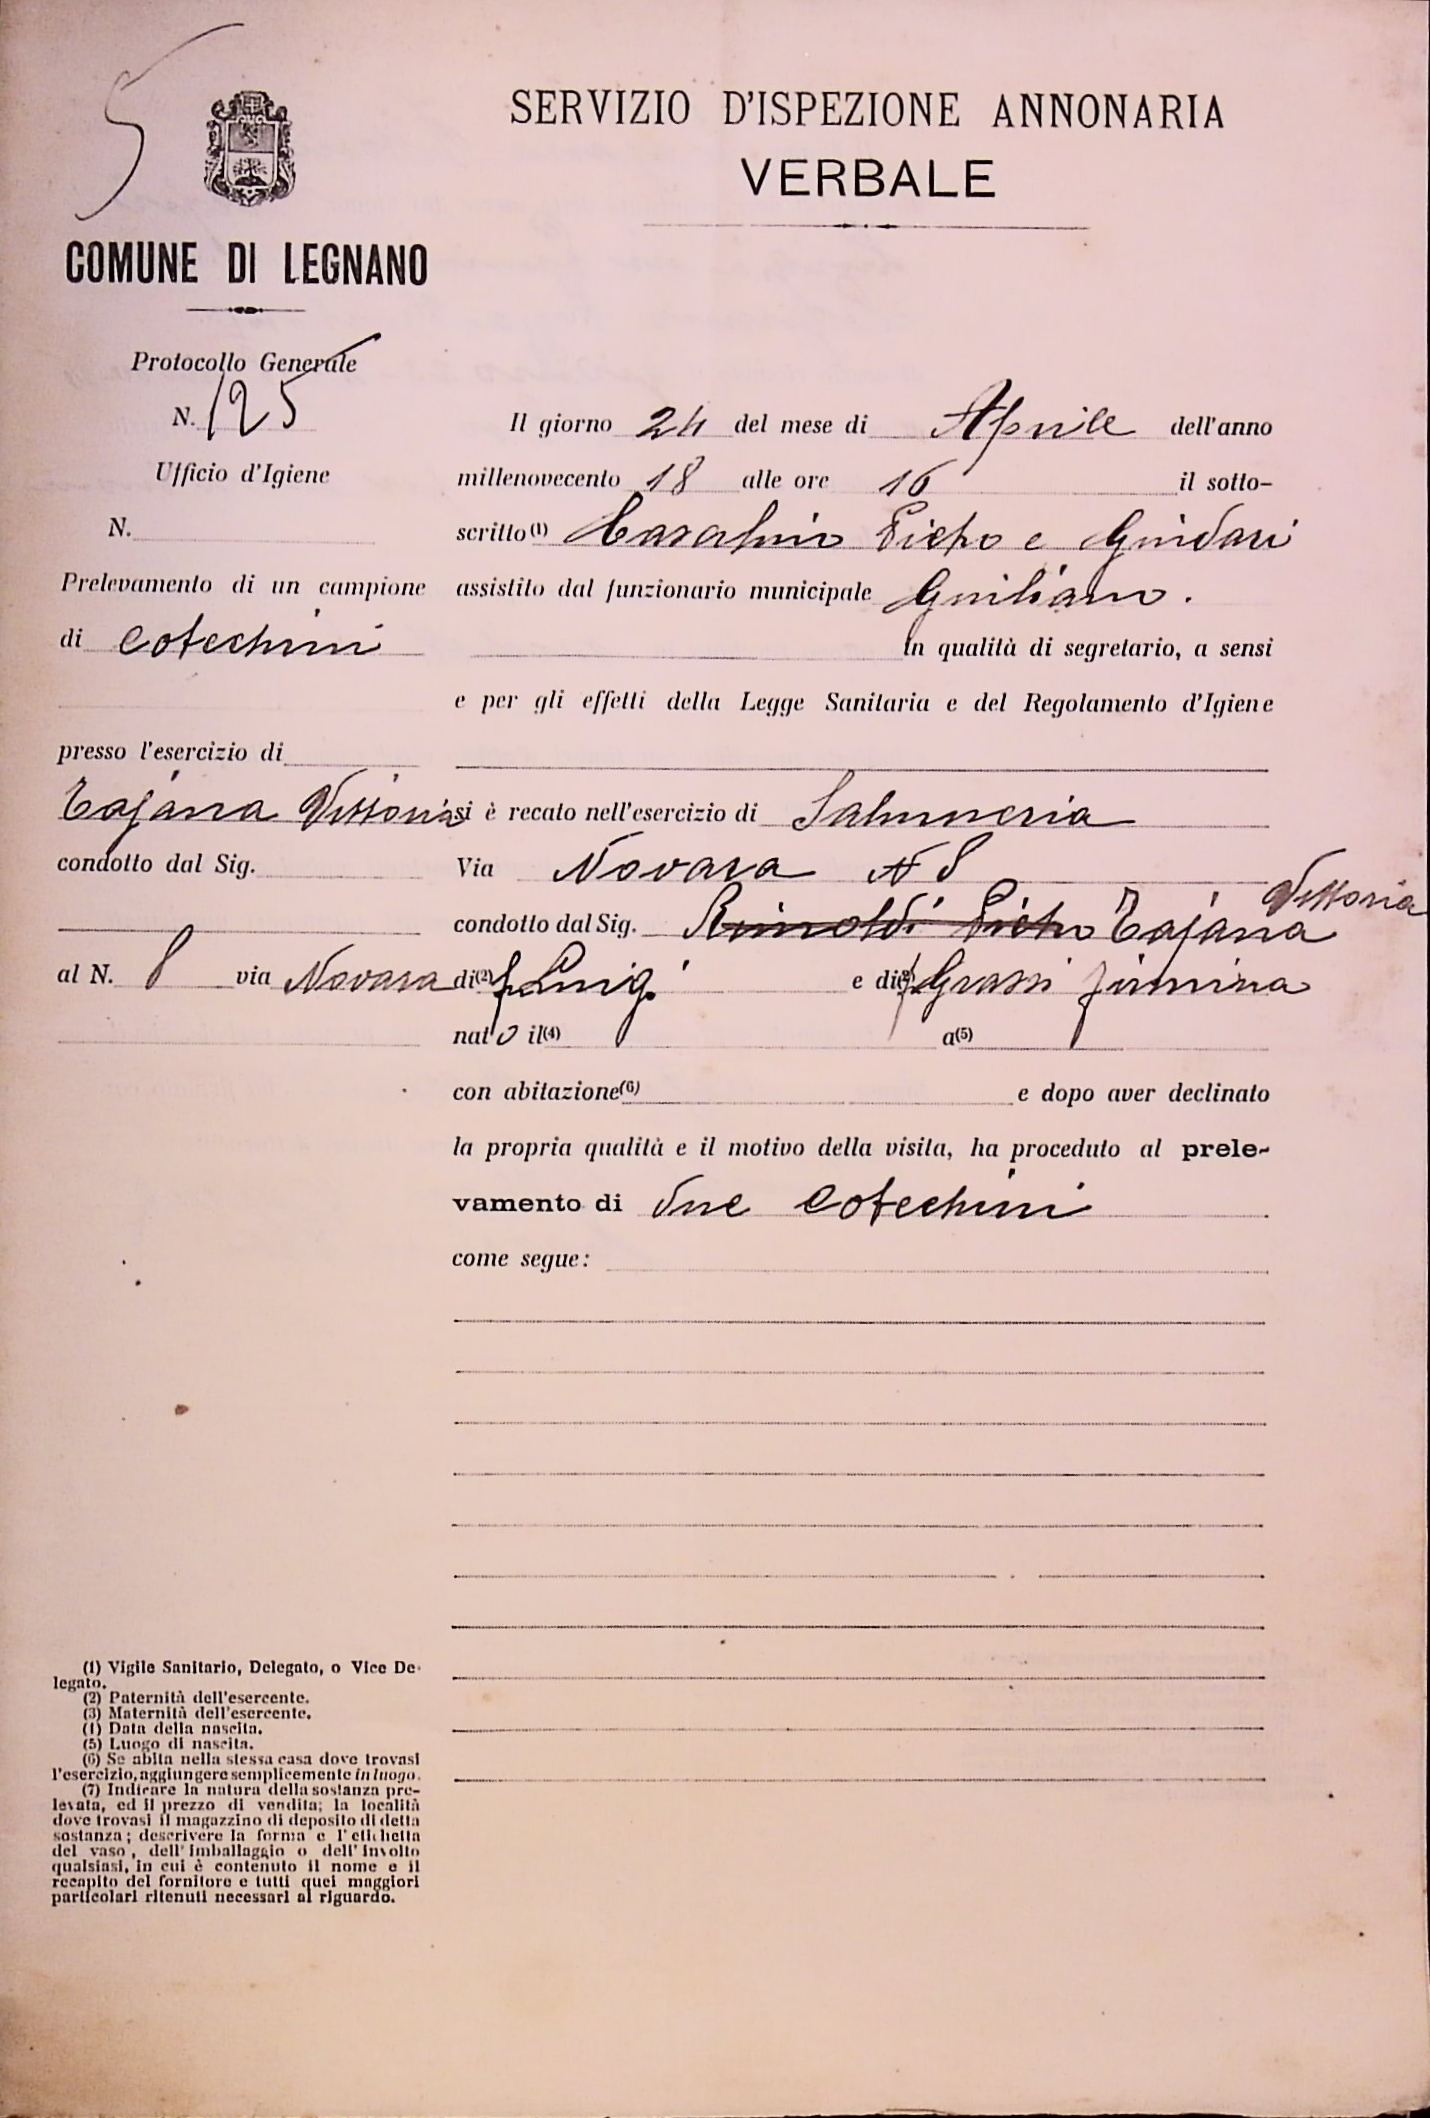 5
SERVIZIO D'ISPEZIONE ANNONARIA
VERBALE
COMUNE DI LEGNANO
Protocollo Generale
N. 125
Ufficio d'Igiene
N.
Prelevamento di un campione
di cotechini
presso l'esercizio di
Tajana Vittoria
condotto dal Sig.
al N. 8 via Novara
Il giorno 24 del mese di Aprile dell'anno
millenovecento 18 alle ore 16 il sotto-
scritto (1) Pietro e Guidari
assistito dal funzionario municipale Giuliano.
in qualità di segretario, a sensi
e per gli effetti della Legge Sanitaria e del Regolamento d'Igiene
si è recato nell'esercizio di Salumeria
Via Novara N 8
condotto dal Sig. Rimoldi Pietro Tajana Vittoria
di (2) f Luigi e di (3) f Grassi Firmina
nato il (4) a (5)
con abitazione (6) e dopo aver declinato
la propria qualità e il motivo della visita, ha proceduto al prele-
vamento di due cotechini
come segue:
(1) Vigile Sanitario, Delegato, o Vice De-
legato.
(2) Paternità dell'esercente.
(3) Maternità dell'esercente.
(4) Data della nascita.
(5) Luogo di nascita.
(6) Se abita nella stessa casa dove trovasi
l'esercizio, aggiungere semplicemente in luogo.
(7) Indicare la natura della sostanza pre-
levata, ed il prezzo di vendita; la località
dove trovasi il magazzino di deposito di detta
sostanza; descrivere la forma e l'etichetta
del vaso, dell'imballaggio o dell'involto
qualsiasi, in cui è contenuto il nome e il
recapito del fornitore e tutti quei maggiori
particolari ritenuti necessari al riguardo.